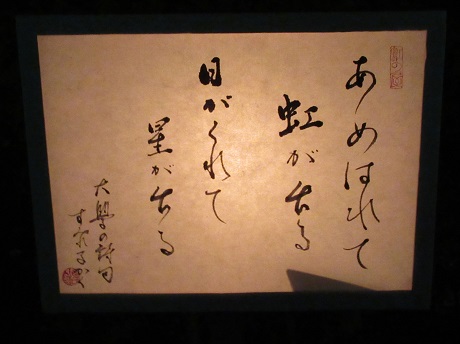 あめはれて
虹が古る
日がくれて
星が古る
大學の詩句